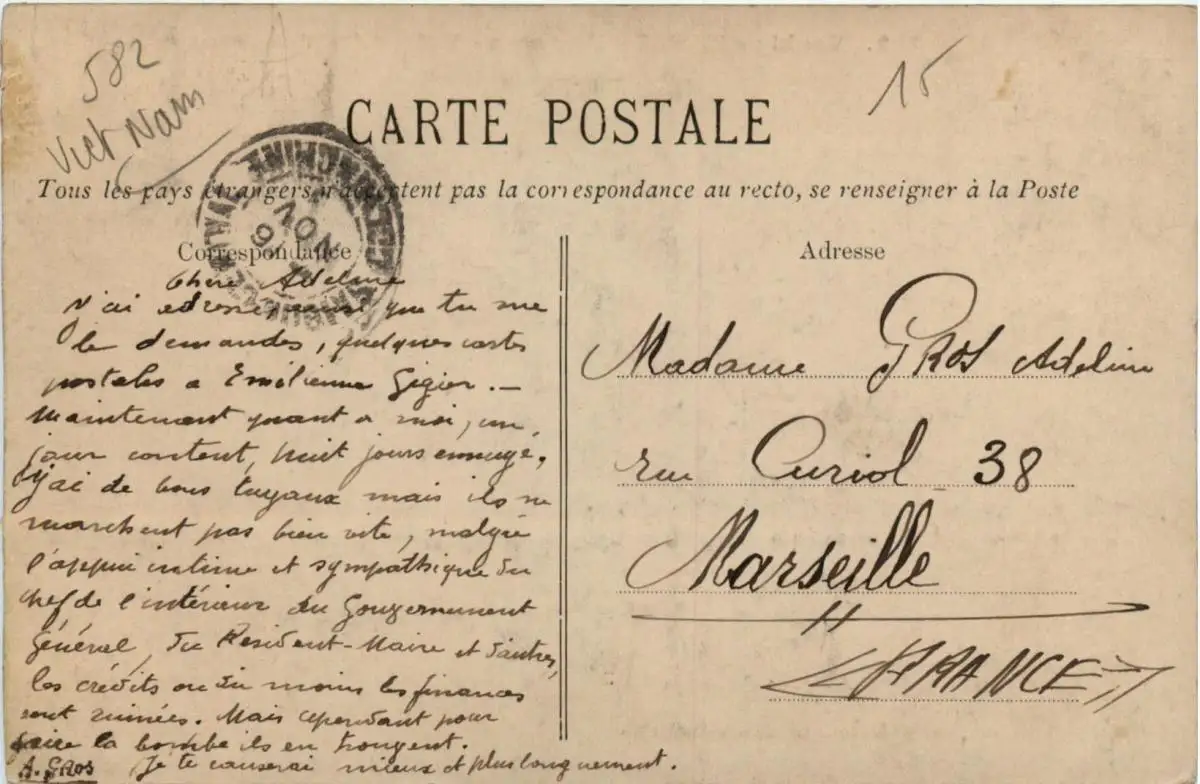 582
Viet Nam
15
CARTE POSTALE
Tous les pays étrangers n'acceptent pas la correspondance au recto, se renseigner à la Poste
Correspondance
Chère Adeline
J'ai adressé, que tu me
le demandes, quelques cartes
postales a Emilienne Gigier. —
Maintenant quant a moi, un
jour content, huit jours ennuyé,
j'ai de bons tuyaux mais ils ne
marchent pas bien vite, malgré
l'appui intime et sympathique du
chef de l'intérieur du Gouvernement
Général, du Résident-Maire et d'autres,
les crédits ou du moins les finances
sont ruinées. Mais cependant pour
faire la bombe ils en trouvent.
A. GROS Je te causerai mieux et plus longuement.
Adresse
Madame GROS Adeline
rue Curiol 38
Marseille
FRANCE